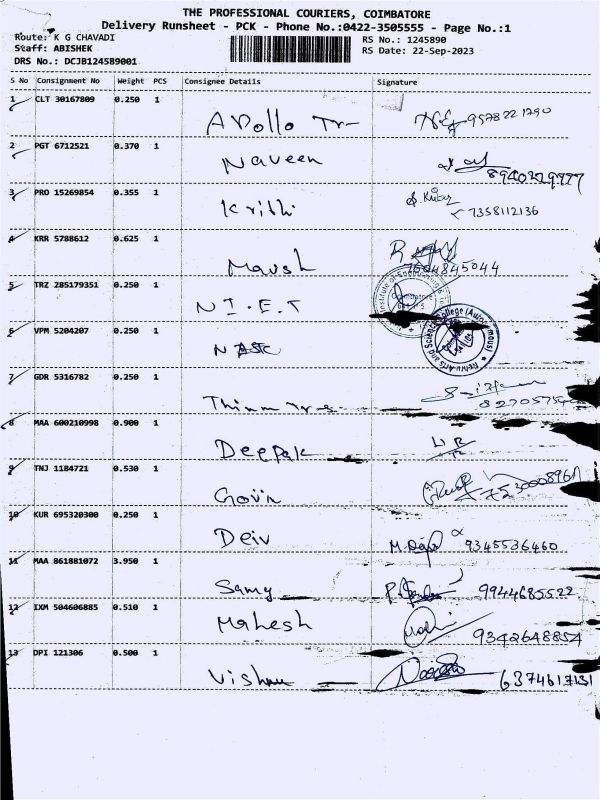 THE PROFESSIONAL COURIERS, COIMBATORE
Delivery Runsheet - PCK - Phone No.:0422-3505555 - Page No.:1
Route: K G CHAVADI
RS No.: 1245890
Staff: ABISHEK
RS Date: 22-Sep-2023
DRS No.: DCJB124589001
S No Consignment No Weight PCS Consignee Details Signature
1 CLT 30167809 0.250 1 Apollo 9578221790
2 PGT 6712521 0.370 1 Naveen
3 PRO 15269854 0.355 1 Krithi 7358112136
4 KRR 5788612 0.625 1 7604845044
5 TRZ 285179351 0.250 1 N.I.E.T
6 VPM 5204207 0.250 1
Nehru Arts and Science College (Autonomous)
7 GDR 5316782 0.250 1
8 MAA 600210998 0.900 1 Deepak
9 TNJ 1184721 0.530 1 Govin
10 KUR 695320300 0.250 1 Deiv 9345536460
11 MAA 861881072 3.950 1 Samy 9944685522
12 IXM 504606885 0.510 1 Mahesh 9342648854
13 DPI 121306 0.500 1 Vishnu 6374617131